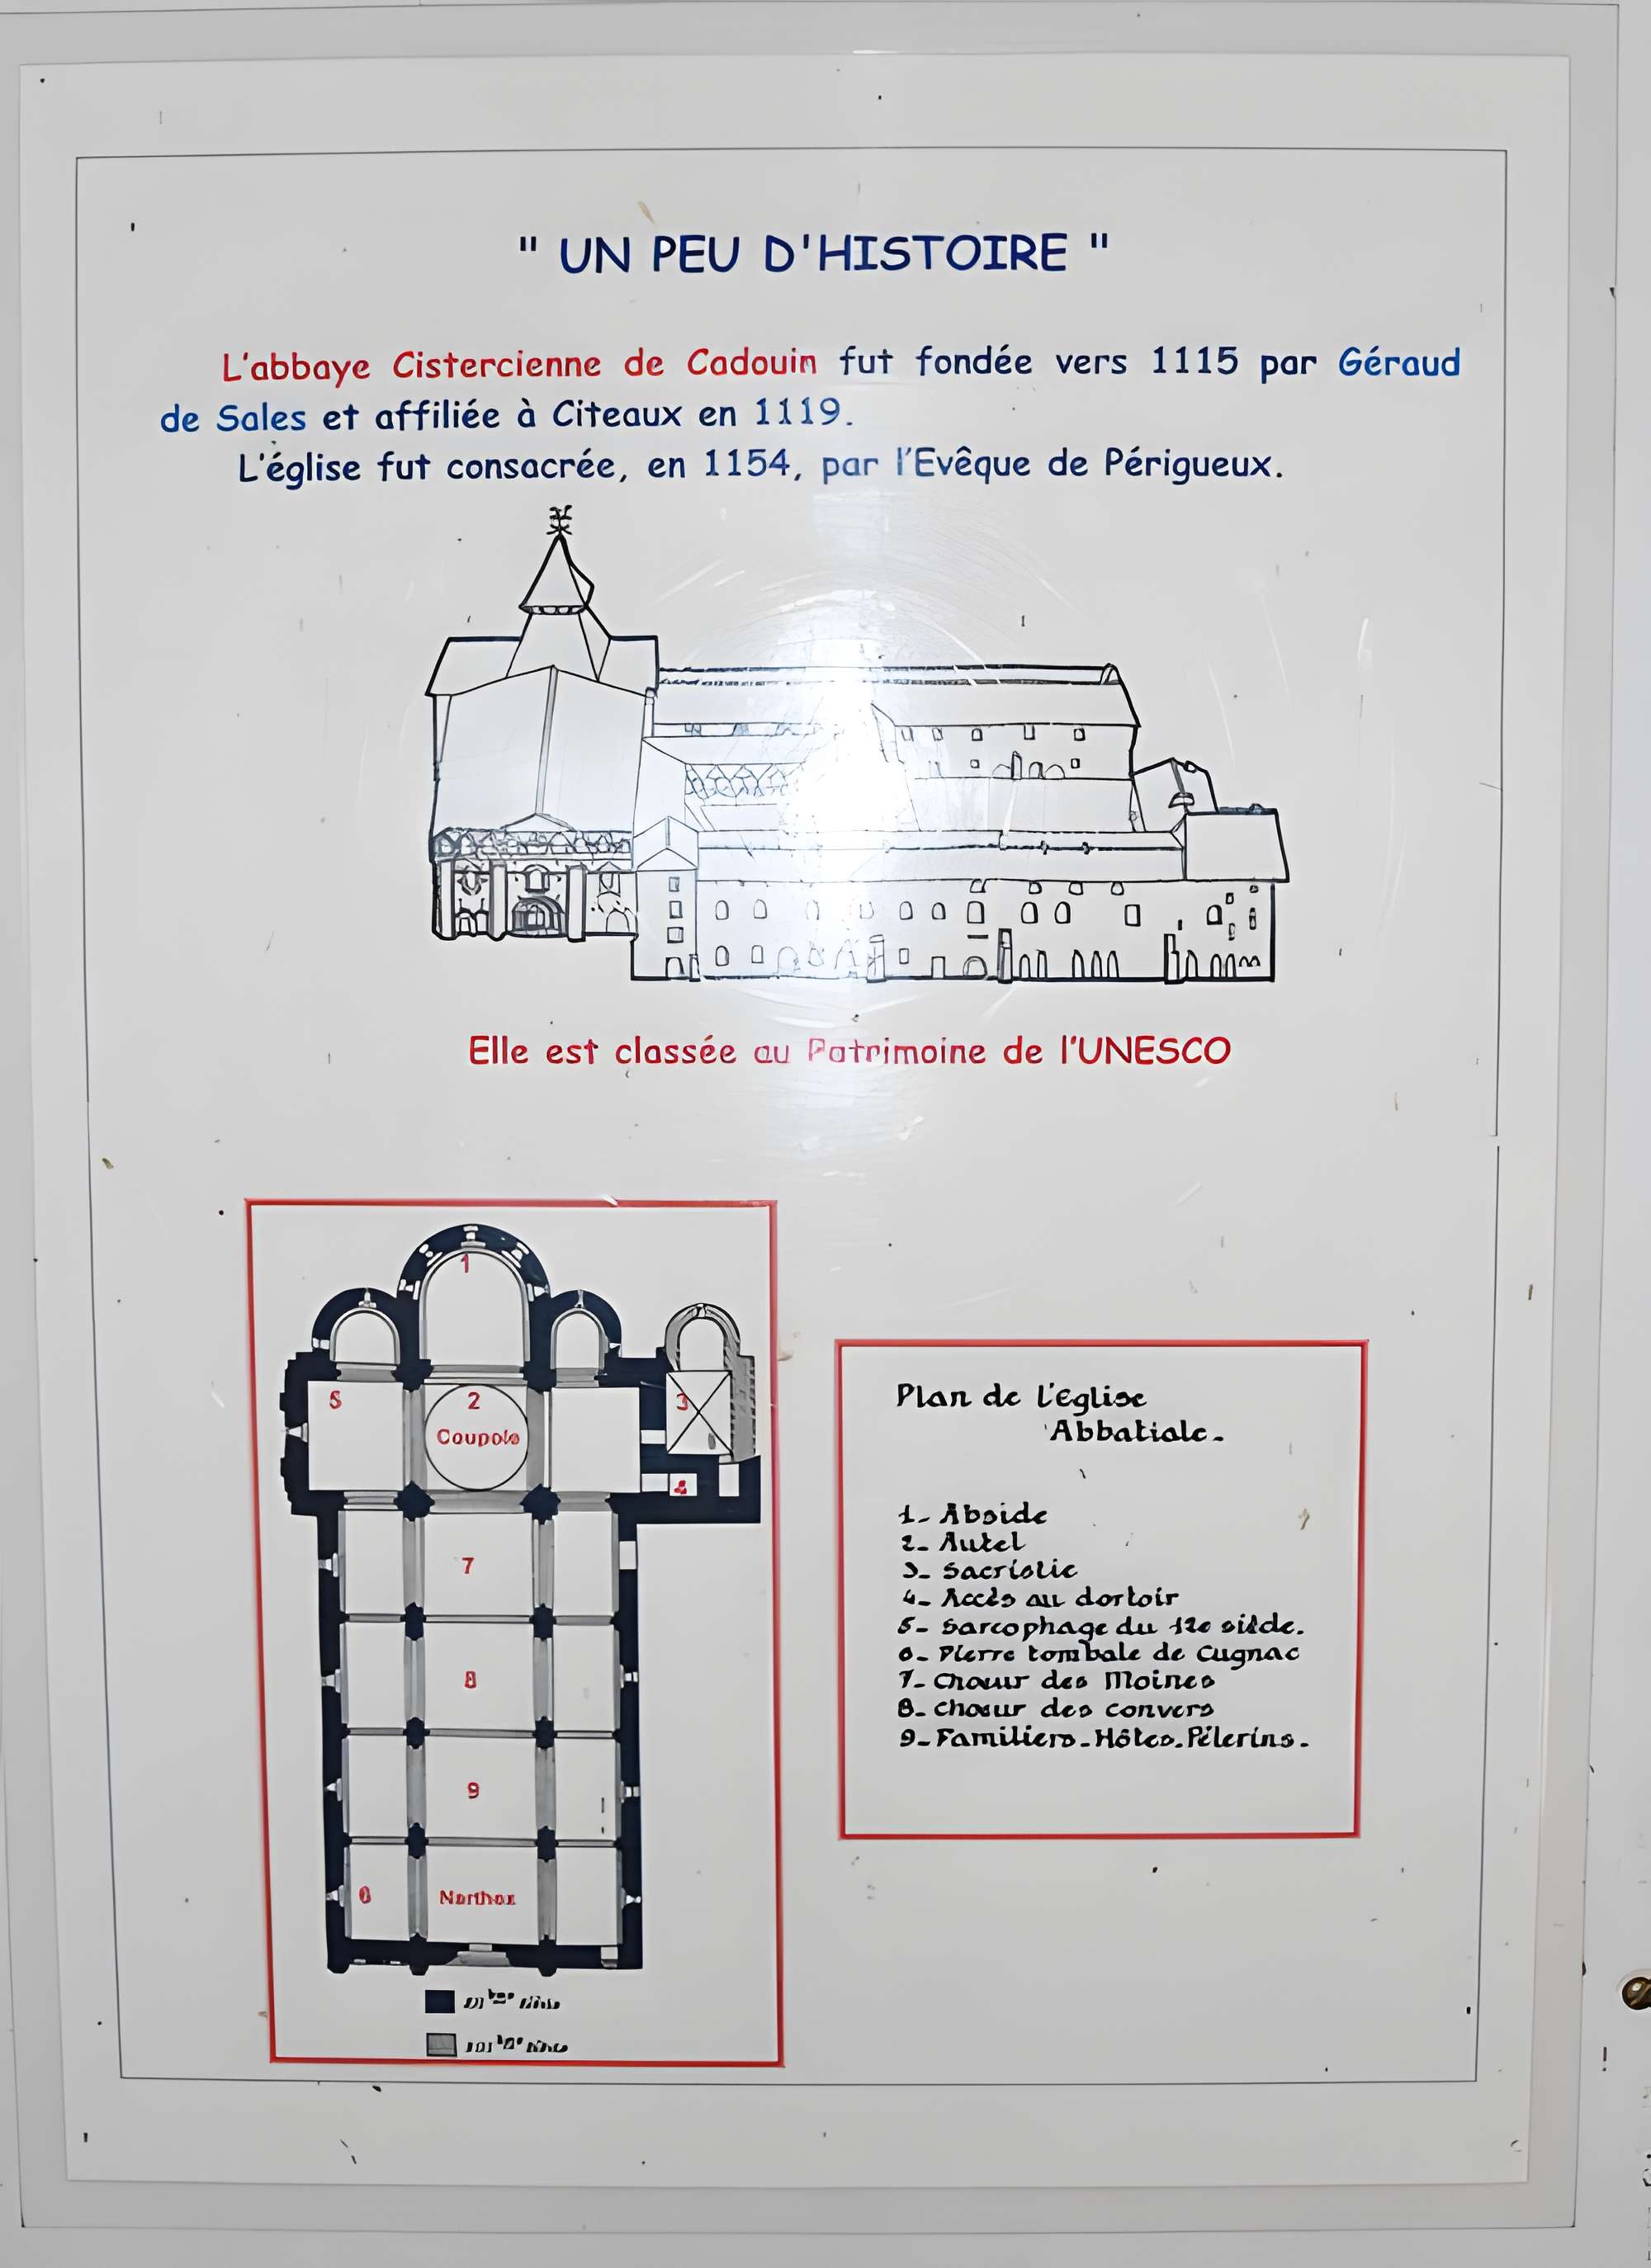 " UN PEU D'HISTOIRE "
L'abbaye Cistercienne de Cadouin fut fondée vers 1115 par Géraud
de Sales et affiliée à Citeaux en 1119.
L'église fut consacrée, en 1154, par l'Evêque de Périgueux.
Elle est classée au Patrimoine de l'UNESCO
1
5
2
3
Coupole
4
7
8
9
6
Narthex
Plan de L'Eglise
Abbatiale.
1- Abside
2- Autel
3- Sacristie
4- Accès au dortoir
5- Sarcophage du 12e siècle.
6- Pierre tombale de Cugnac
7- Chœur des Moines
8- Chœur des convers
9- Familiers - Hôtes. Pèlerins.